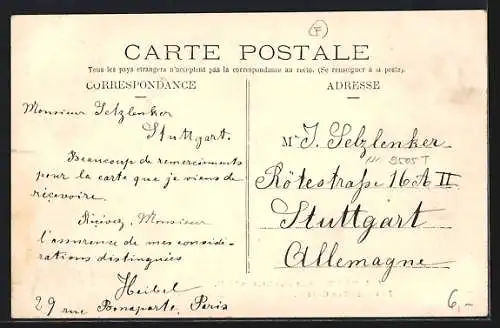 F
CARTE POSTALE
Tous les pays étrangers n'acceptent pas la correspondance au recto. (Se renseigner à la poste).
CORRESPONDANCE
Monsieur Selzlenker
Stuttgart.
Beaucoup de remerciements
pour la carte que je viens de
reçevoire.
Reçevez, Monsieur
l'assurence de mes considé-
rations distinguées
Heibel
29 rue Bonaparte, Paris
ADRESSE
Mr J. Selzlenker
9505T
Rötestraße 16A II
Stuttgart
Allemagne
6,-